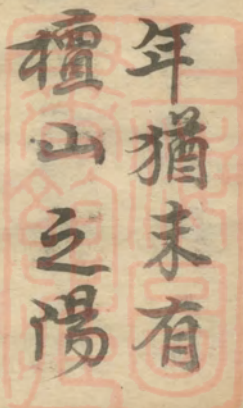 年猶未有
檀山之陽